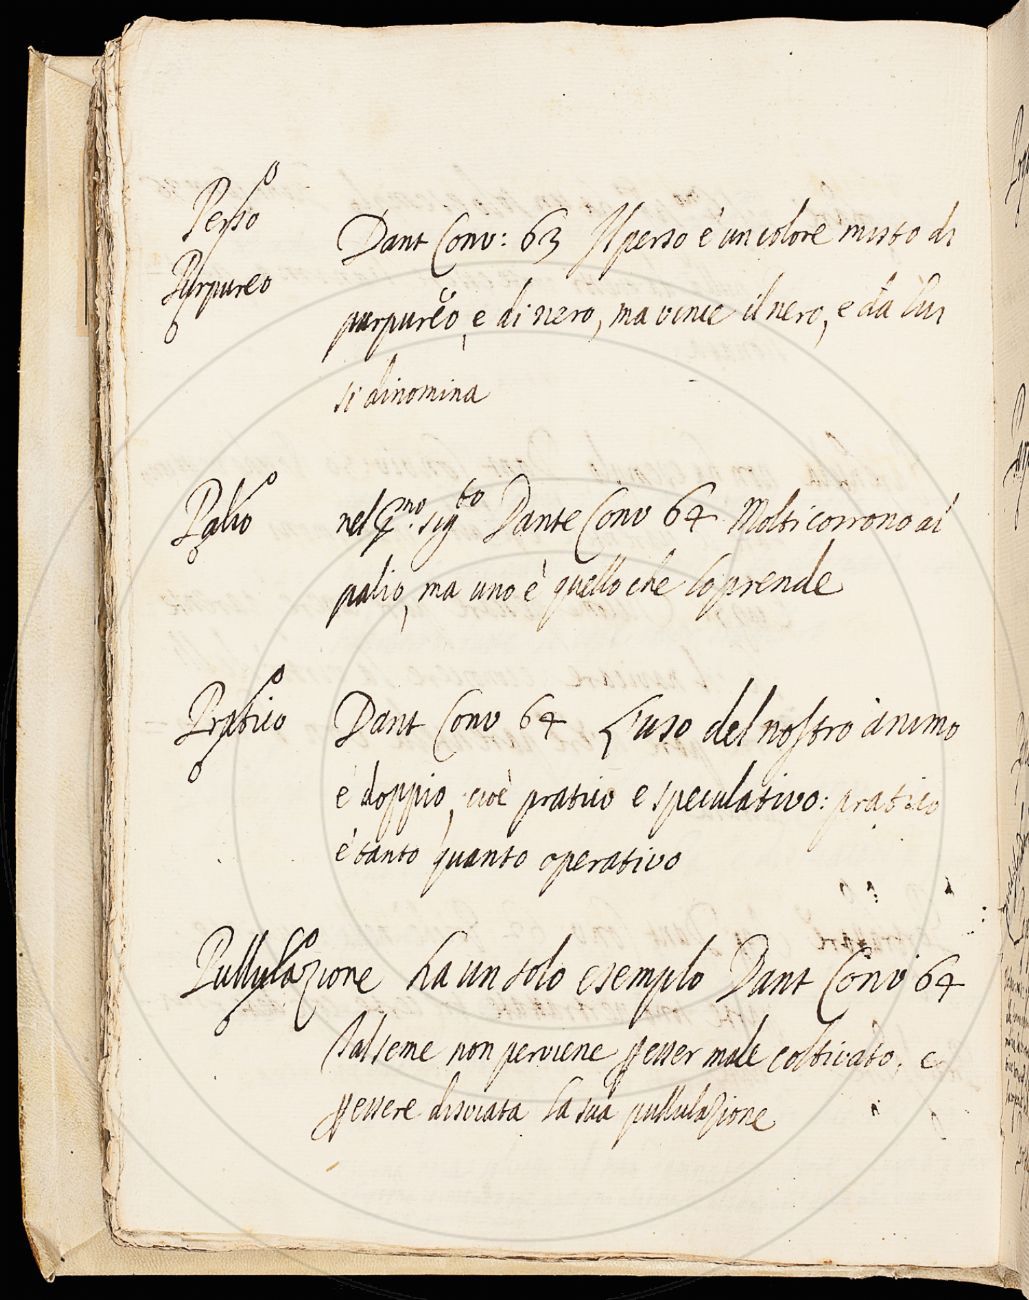 Perso
Purpureo
Dant Conv: 63 Il perso è un colore misto di
purpureo, e di nero, ma vince il nero, e da lui
si dinomina
Palio
nel p.mo sig.to Dante Conv 64 Molti corrono al
palio, ma uno è quello che lo prende
Pratico
Dant Conv 64 L'uso del nostro animo
è doppio, cioè pratico e speculativo: pratico
è tanto quanto operativo
Pullulazione ha un solo esempio Dant Conv 64
Dal seme non perviene p esser male coltivato, e
p essere disviata la sua pullulazione